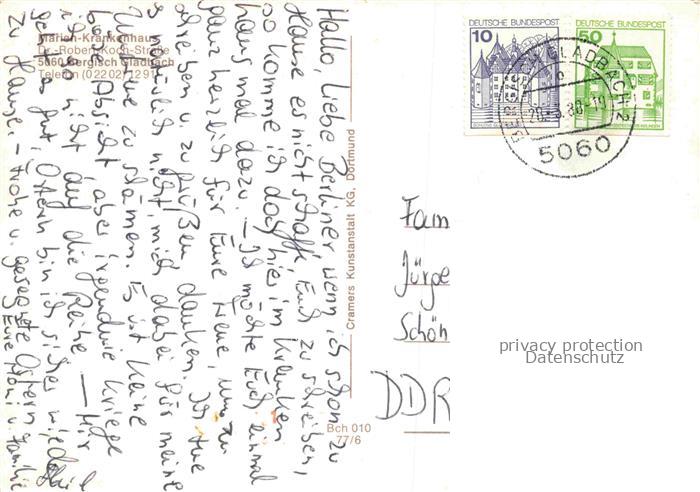 Marien-Krankenhaus
Dr.-Robert-Koch-Straße
5060 Bergisch Gladbach
Telefon (02202) 1291
Hallo, liebe Berliner, wenn ich schon zu
Hause es nicht schaffe Euch zu schreiben,
so komme ich doch hier im Kranken
haus mal dazu. – Ich möchte Euch einmal
ganz herzlich für Eure Treue, uns zu
schreiben u. zu grüßen danken. Ich tue
es natürlich nicht, mich dabei für meine
zu schämen. Es ist keine
böse Absicht aber irgendwie kriege
ich nicht auf die Reihe. – Mir
geht es gut, Ostern bin ich sicher wieder
zu Hause – Frohe u. gesegnete Ostern
Eure u. Familie
Cramers Kunstanstalt KG, Dortmund
Bch 010
77/6
DEUTSCHE BUNDESPOST
10
DEUTSCHE BUNDESPOST
50
BERGISCH GLADBACH 2
5060
Fam
Jürge
Schön
DDR
privacy protection
Datenschutz